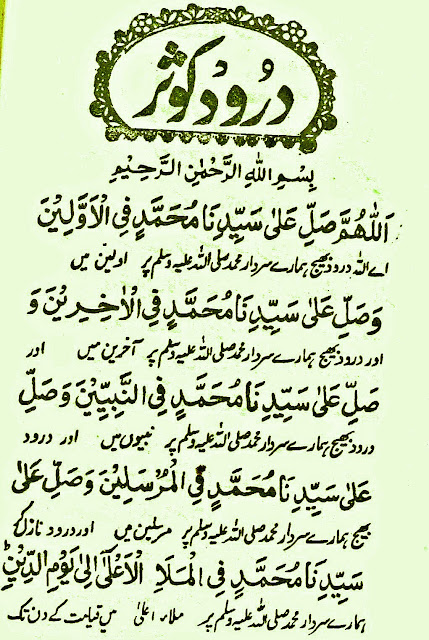 درود کوثر
بِسْمِ اللهِ الرَّحْمٰنِ الرَّحِيْمِ
اَللّٰهُمَّ صَلِّ عَلٰى سَيِّدِنَا مُحَمَّدٍ فِي الْاَوَّلِيْنَ
اے اللہ درود بھیج ہمارے سردار محمد صلی اللہ علیہ وسلم پر اولین میں
وَصَلِّ عَلٰى سَيِّدِنَا مُحَمَّدٍ فِي الْاٰخِرِيْنَ وَ
اور درود بھیج ہمارے سردار محمد صلی اللہ علیہ وسلم پر آخرین میں اور
صَلِّ عَلٰى سَيِّدِنَا مُحَمَّدٍ فِي النَّبِيِّيْنَ وَصَلِّ
درود بھیج ہمارے سردار محمد صلی اللہ علیہ وسلم پر نبیوں میں اور درود
عَلٰى سَيِّدِنَا مُحَمَّدٍ فِي الْمُرْسَلِيْنَ وَصَلِّ عَلٰى
بھیج ہمارے سردار محمد صلی اللہ علیہ وسلم پر مرسلین میں اور درود نازل کر
سَيِّدِنَا مُحَمَّدٍ فِي الْمَلَاِ الْاَعْلٰى اِلٰى يَوْمِ الدِّيْنِ
ہمارے سردار محمد صلی اللہ علیہ وسلم پر ملاء اعلیٰ میں قیامت کے دن تک